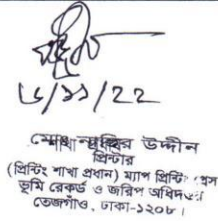 ৬/১১/২২
উদ্দীন
প্রিন্টার
(প্রিন্টিং শাখা প্রধান) ম্যাপ প্রিন্টিং প্রেস
ভূমি রেকর্ড ও জরিপ অধিদপ্তর
তেজগাঁও, ঢাকা-১২০৮।